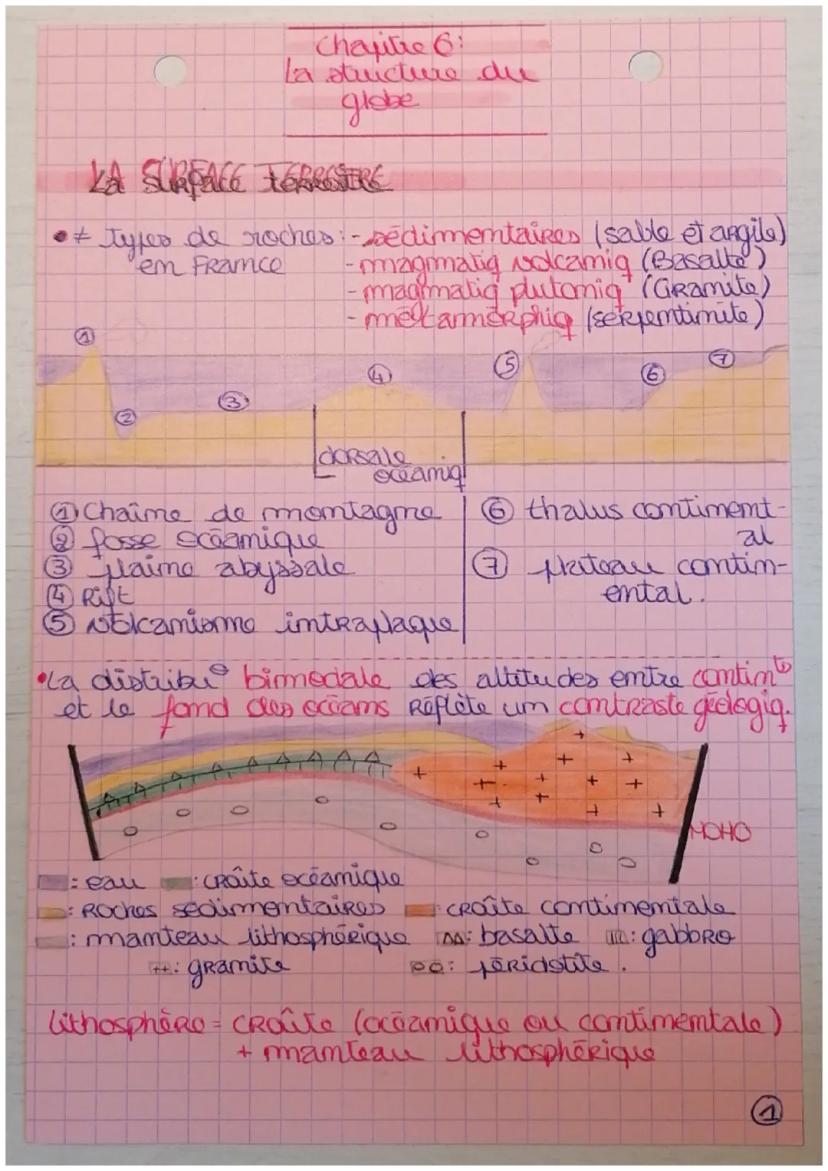 Chapitre 6:
La structure du
globe
LA SURFACE TERRESTRE
• ≠ Types de roches : - sédimentaires (sable et argile)
en France - magmatiq volcaniq (Basalte)
- magmatiq plutoniq (Granite)
- métamorphiq (serpentinite)
① ② ③ ④ ⑤ ⑥ ⑦
dorsale
océaniq
① Chaîne de montagne
② fosse océanique
③ plaine abyssale
④ Rift
⑤ volcanisme intraplaque
⑥ thalus continent-
al
⑦ plateau contin-
ental.
• La distribu° bimodale des altitudes entre contints
et le fond des océans Reflète un contraste géologiq.
MOHO
: eau : croûte océanique
: Roches sédimentaires : croûte continentale
: manteau lithosphérique ^^: basalte m: gabbro
++: granite oo: péridotite.
Lithosphère = croûte (océanique ou continentale)
+ manteau lithosphérique
①